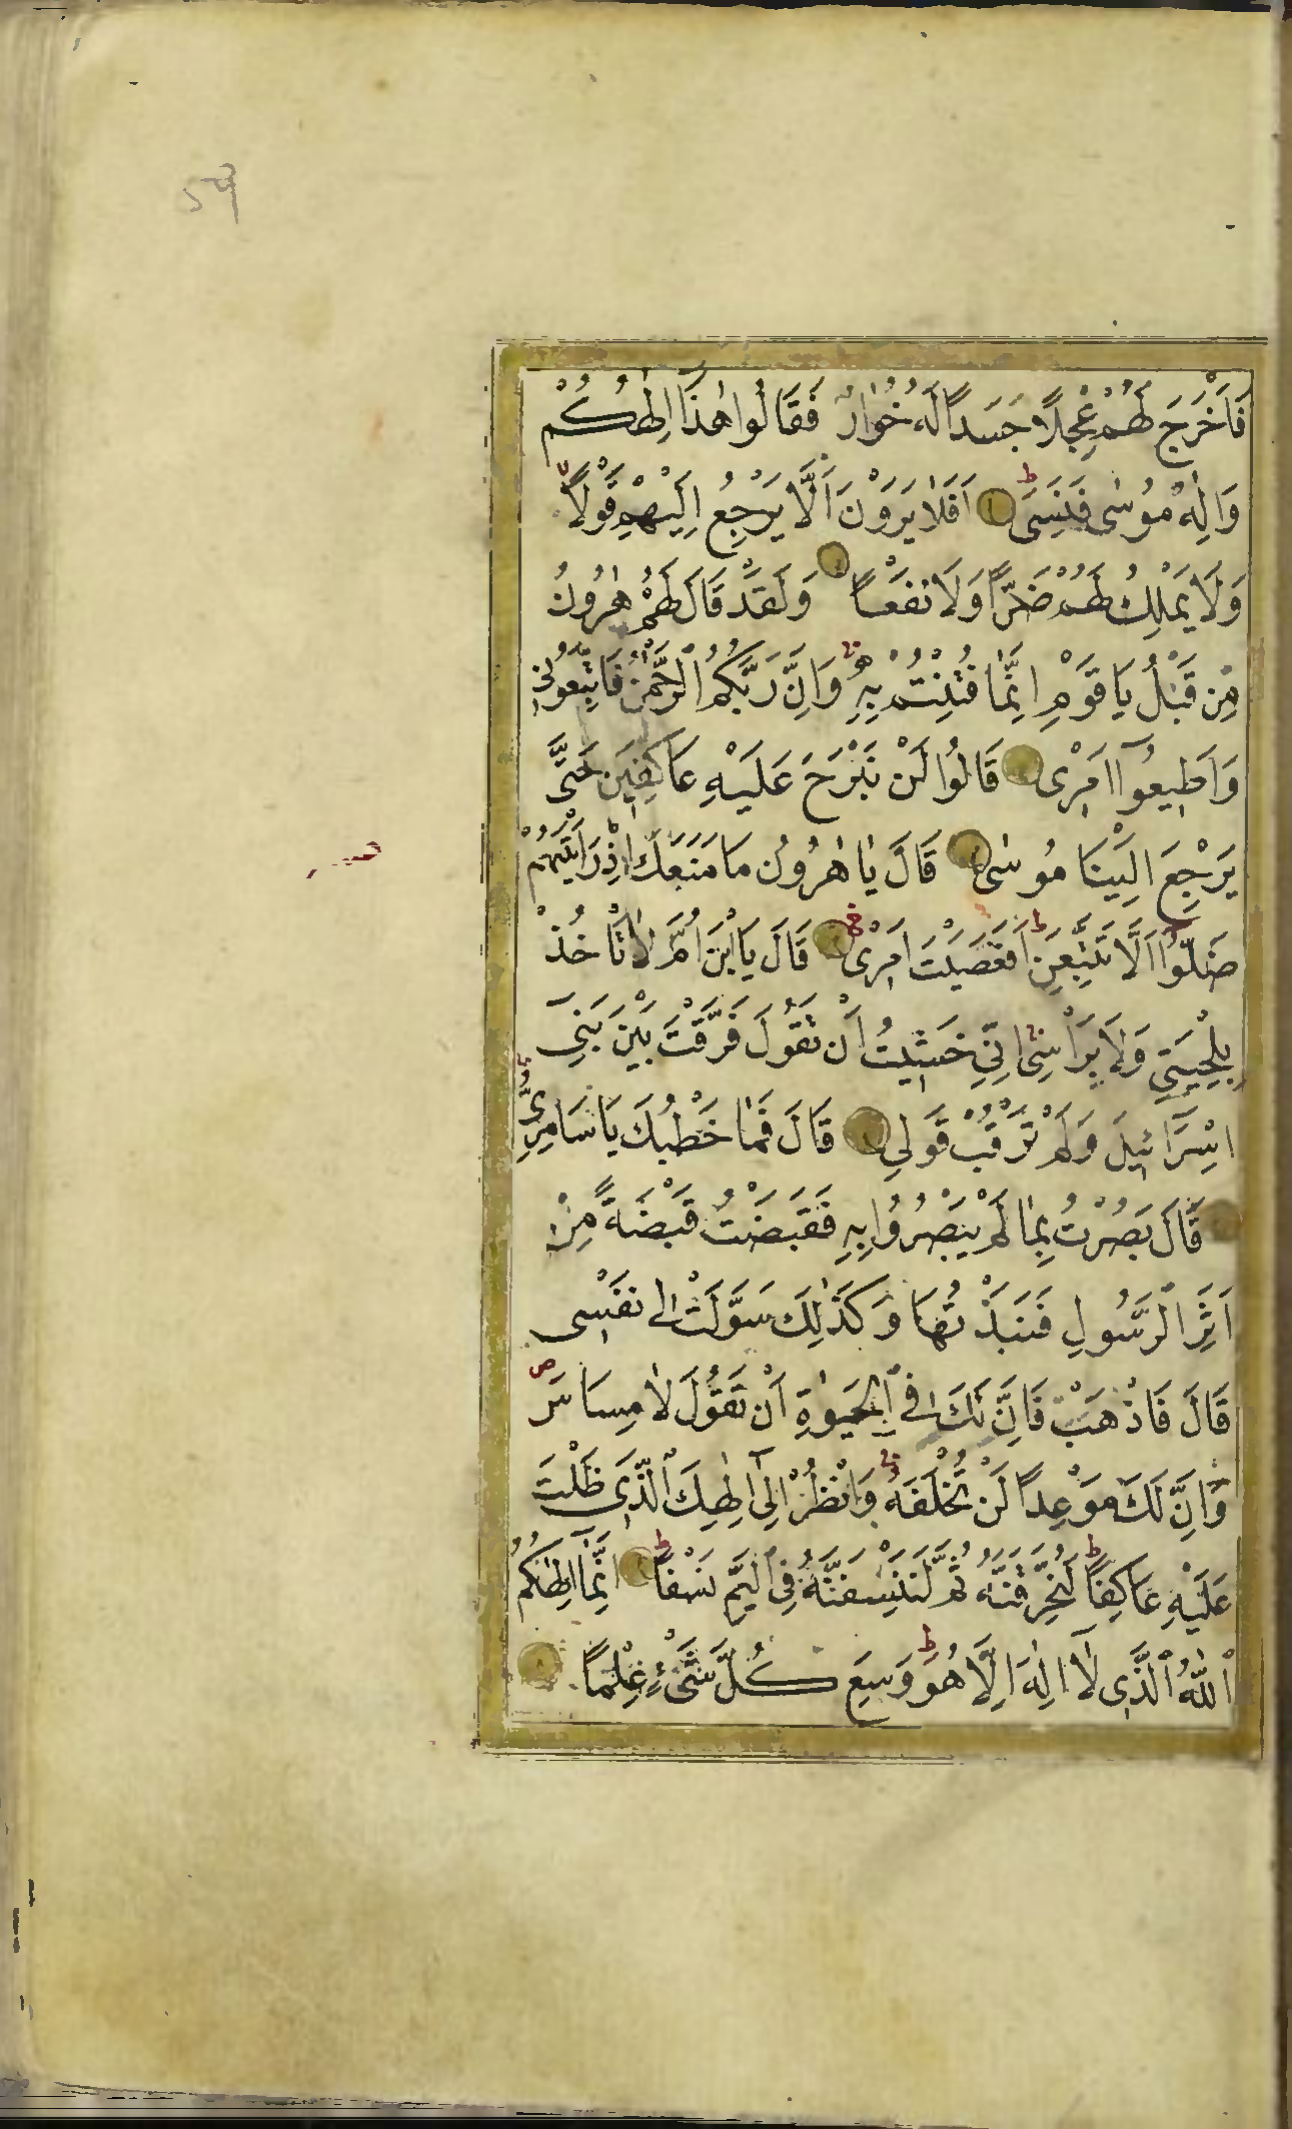 59
فَاَخْرَجَ لَهُمْ عِجْلًا جَسَدًا لَهُ خُوَارٌ فَقَالُوا هٰذَا اِلٰهُكُمْ
وَاِلٰهُ مُوسٰى فَنَسِىَ ط اَفَلَا يَرَوْنَ اَلَّا يَرْجِعُ اِلَيْهِمْ قَوْلًا
وَلَا يَمْلِكُ لَهُمْ ضَرًّا وَلَا نَفْعًا وَلَقَدْ قَالَ لَهُمْ هٰرُونُ
مِنْ قَبْلُ يَا قَوْمِ اِنَّمَا فُتِنْتُمْ بِهِ وَاِنَّ رَبَّكُمُ الرَّحْمٰنُ فَاتَّبِعُونِى
وَاَطِيعُوٓا اَمْرِى قَالُوا لَنْ نَبْرَحَ عَلَيْهِ عَاكِفِينَ حَتّٰى
يَرْجِعَ اِلَيْنَا مُوسٰى قَالَ يَا هٰرُونُ مَا مَنَعَكَ اِذْ رَاَيْتَهُمْ
ضَلُّوٓا اَلَّا تَتَّبِعَنِ ط اَفَعَصَيْتَ اَمْرِى قَالَ يَا ابْنَ اُمَّ لَا تَاْخُذْ
بِلِحْيَتِى وَلَا بِرَاْسِى اِنِّى خَشِيتُ اَنْ تَقُولَ فَرَّقْتَ بَيْنَ بَنِىٓ
اِسْرَٓائِيلَ وَلَمْ تَرْقُبْ قَوْلِى قَالَ فَمَا خَطْبُكَ يَا سَامِرِىُّ
قَالَ بَصُرْتُ بِمَا لَمْ يَبْصُرُوا بِهِ فَقَبَضْتُ قَبْضَةً مِنْ
اَثَرِ الرَّسُولِ فَنَبَذْتُهَا وَكَذٰلِكَ سَوَّلَتْ لِى نَفْسِى
قَالَ فَاذْهَبْ فَاِنَّ لَكَ فِى الْحَيٰوةِ اَنْ تَقُولَ لَا مِسَاسَ ص
وَاِنَّ لَكَ مَوْعِدًا لَنْ تُخْلَفَهُ وَانْظُرْ اِلٰىٓ اِلٰهِكَ الَّذِى ظَلْتَ
عَلَيْهِ عَاكِفًا ط لَنُحَرِّقَنَّهُ ثُمَّ لَنَنْسِفَنَّهُ فِى الْيَمِّ نَسْفًا ط اِنَّمَا اِلٰهُكُمُ
اللّٰهُ الَّذِى لَٓا اِلٰهَ اِلَّا هُوَ ط وَسِعَ كُلَّ شَىْءٍ عِلْمًا